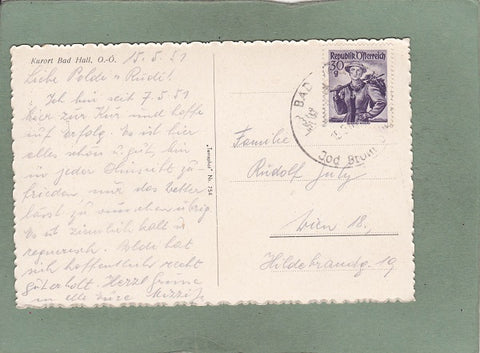 Kurort Bad Hall, O.-Ö. 15.5.51
Liebe Poldi u. Rudi!
Ich bin seit 7.5.51
hier zur Kur und hoffe
auf Erfolg. Es ist hier
alles schön u. gut, bin
in jeder Hinsicht zu
frieden, nur das Wetter
lässt zu wünschen übrig.
Es ist ziemlich kalt u.
regnerisch. Poldi hat
sich hoffentlich recht
gut erholt. Herzl. Grüsse
an alle Eure Mizzi
Nr. 754
Republik Österreich
30
g
BAD
Jod Brom
Familie
Rudolf
Wien 18.
Hildebrandg. 19